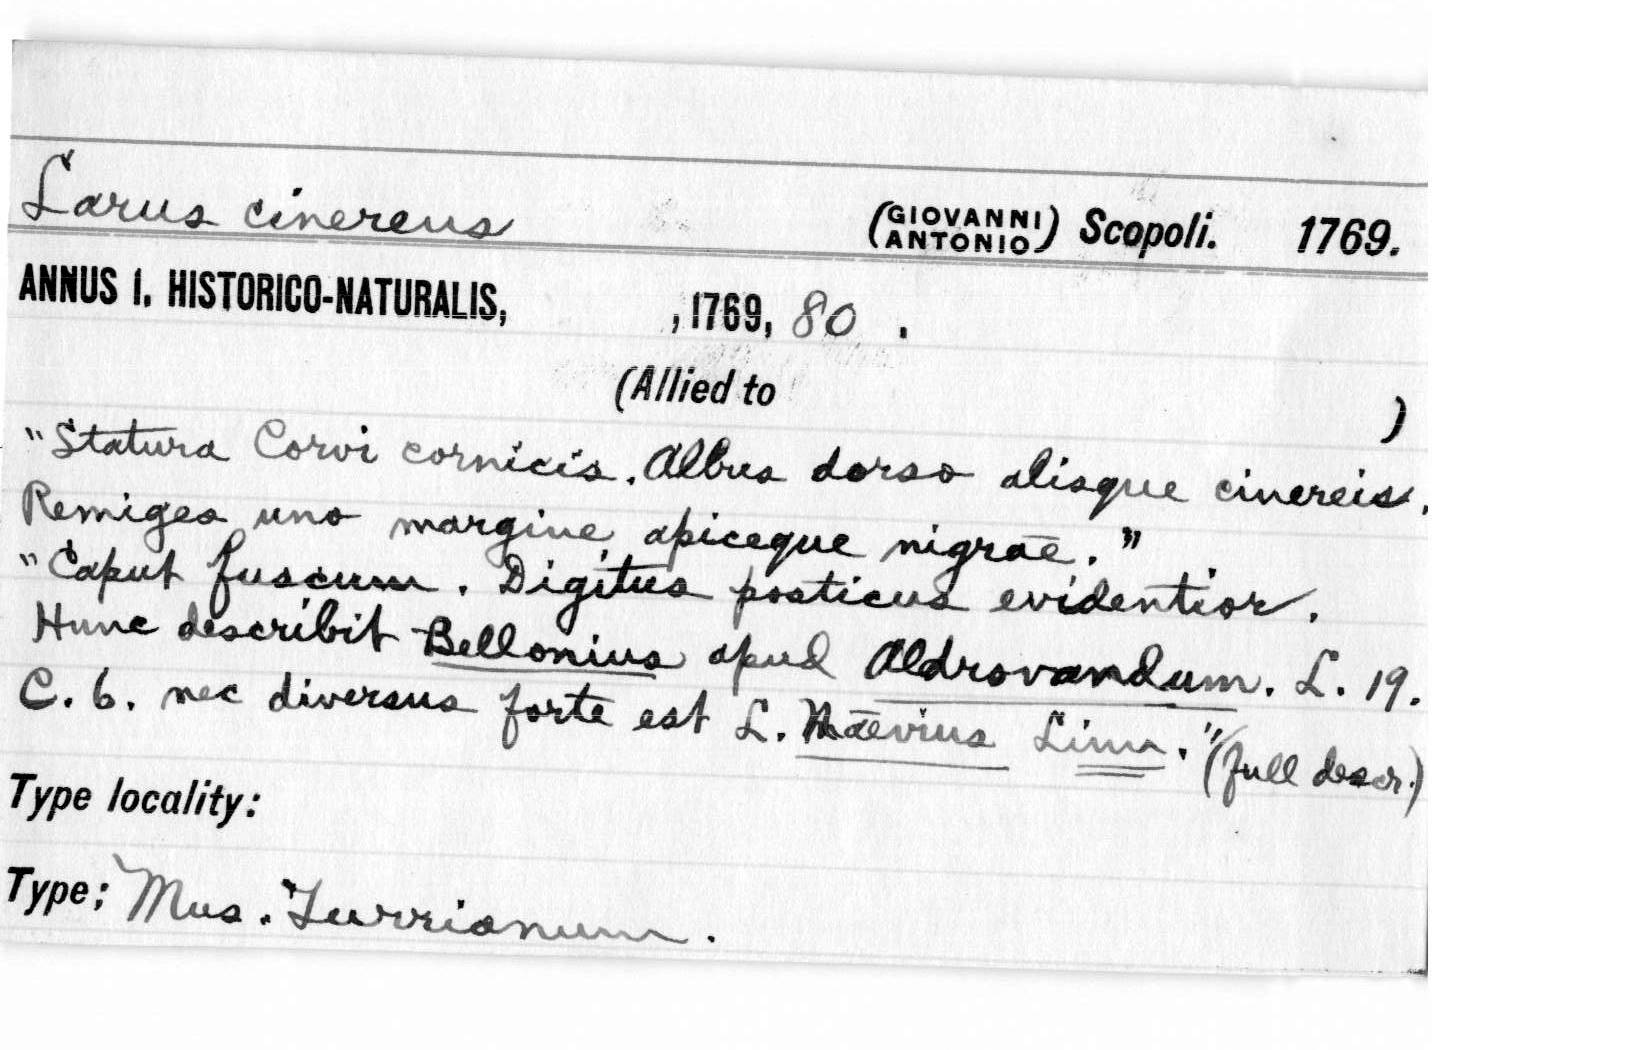 Larus cinereus (GIOVANNI ANTONIO) Scopoli. 1769.
ANNUS I. HISTORICO-NATURALIS, , 1769, 80 .
(Allied to )
"Statura Corvi cornicis. Albus dorso alisque cinereis.
Remiges uno margine, apiceque nigrae."
"Caput fuscum. Digitus posticus evidentior.
Hunc describit Bellonius apud Aldrovandum. L. 19.
C. 6. nec diversus forte est L. Naevius Linn." (full descr.)
Type locality:
Type; "Mus. Turrianum.